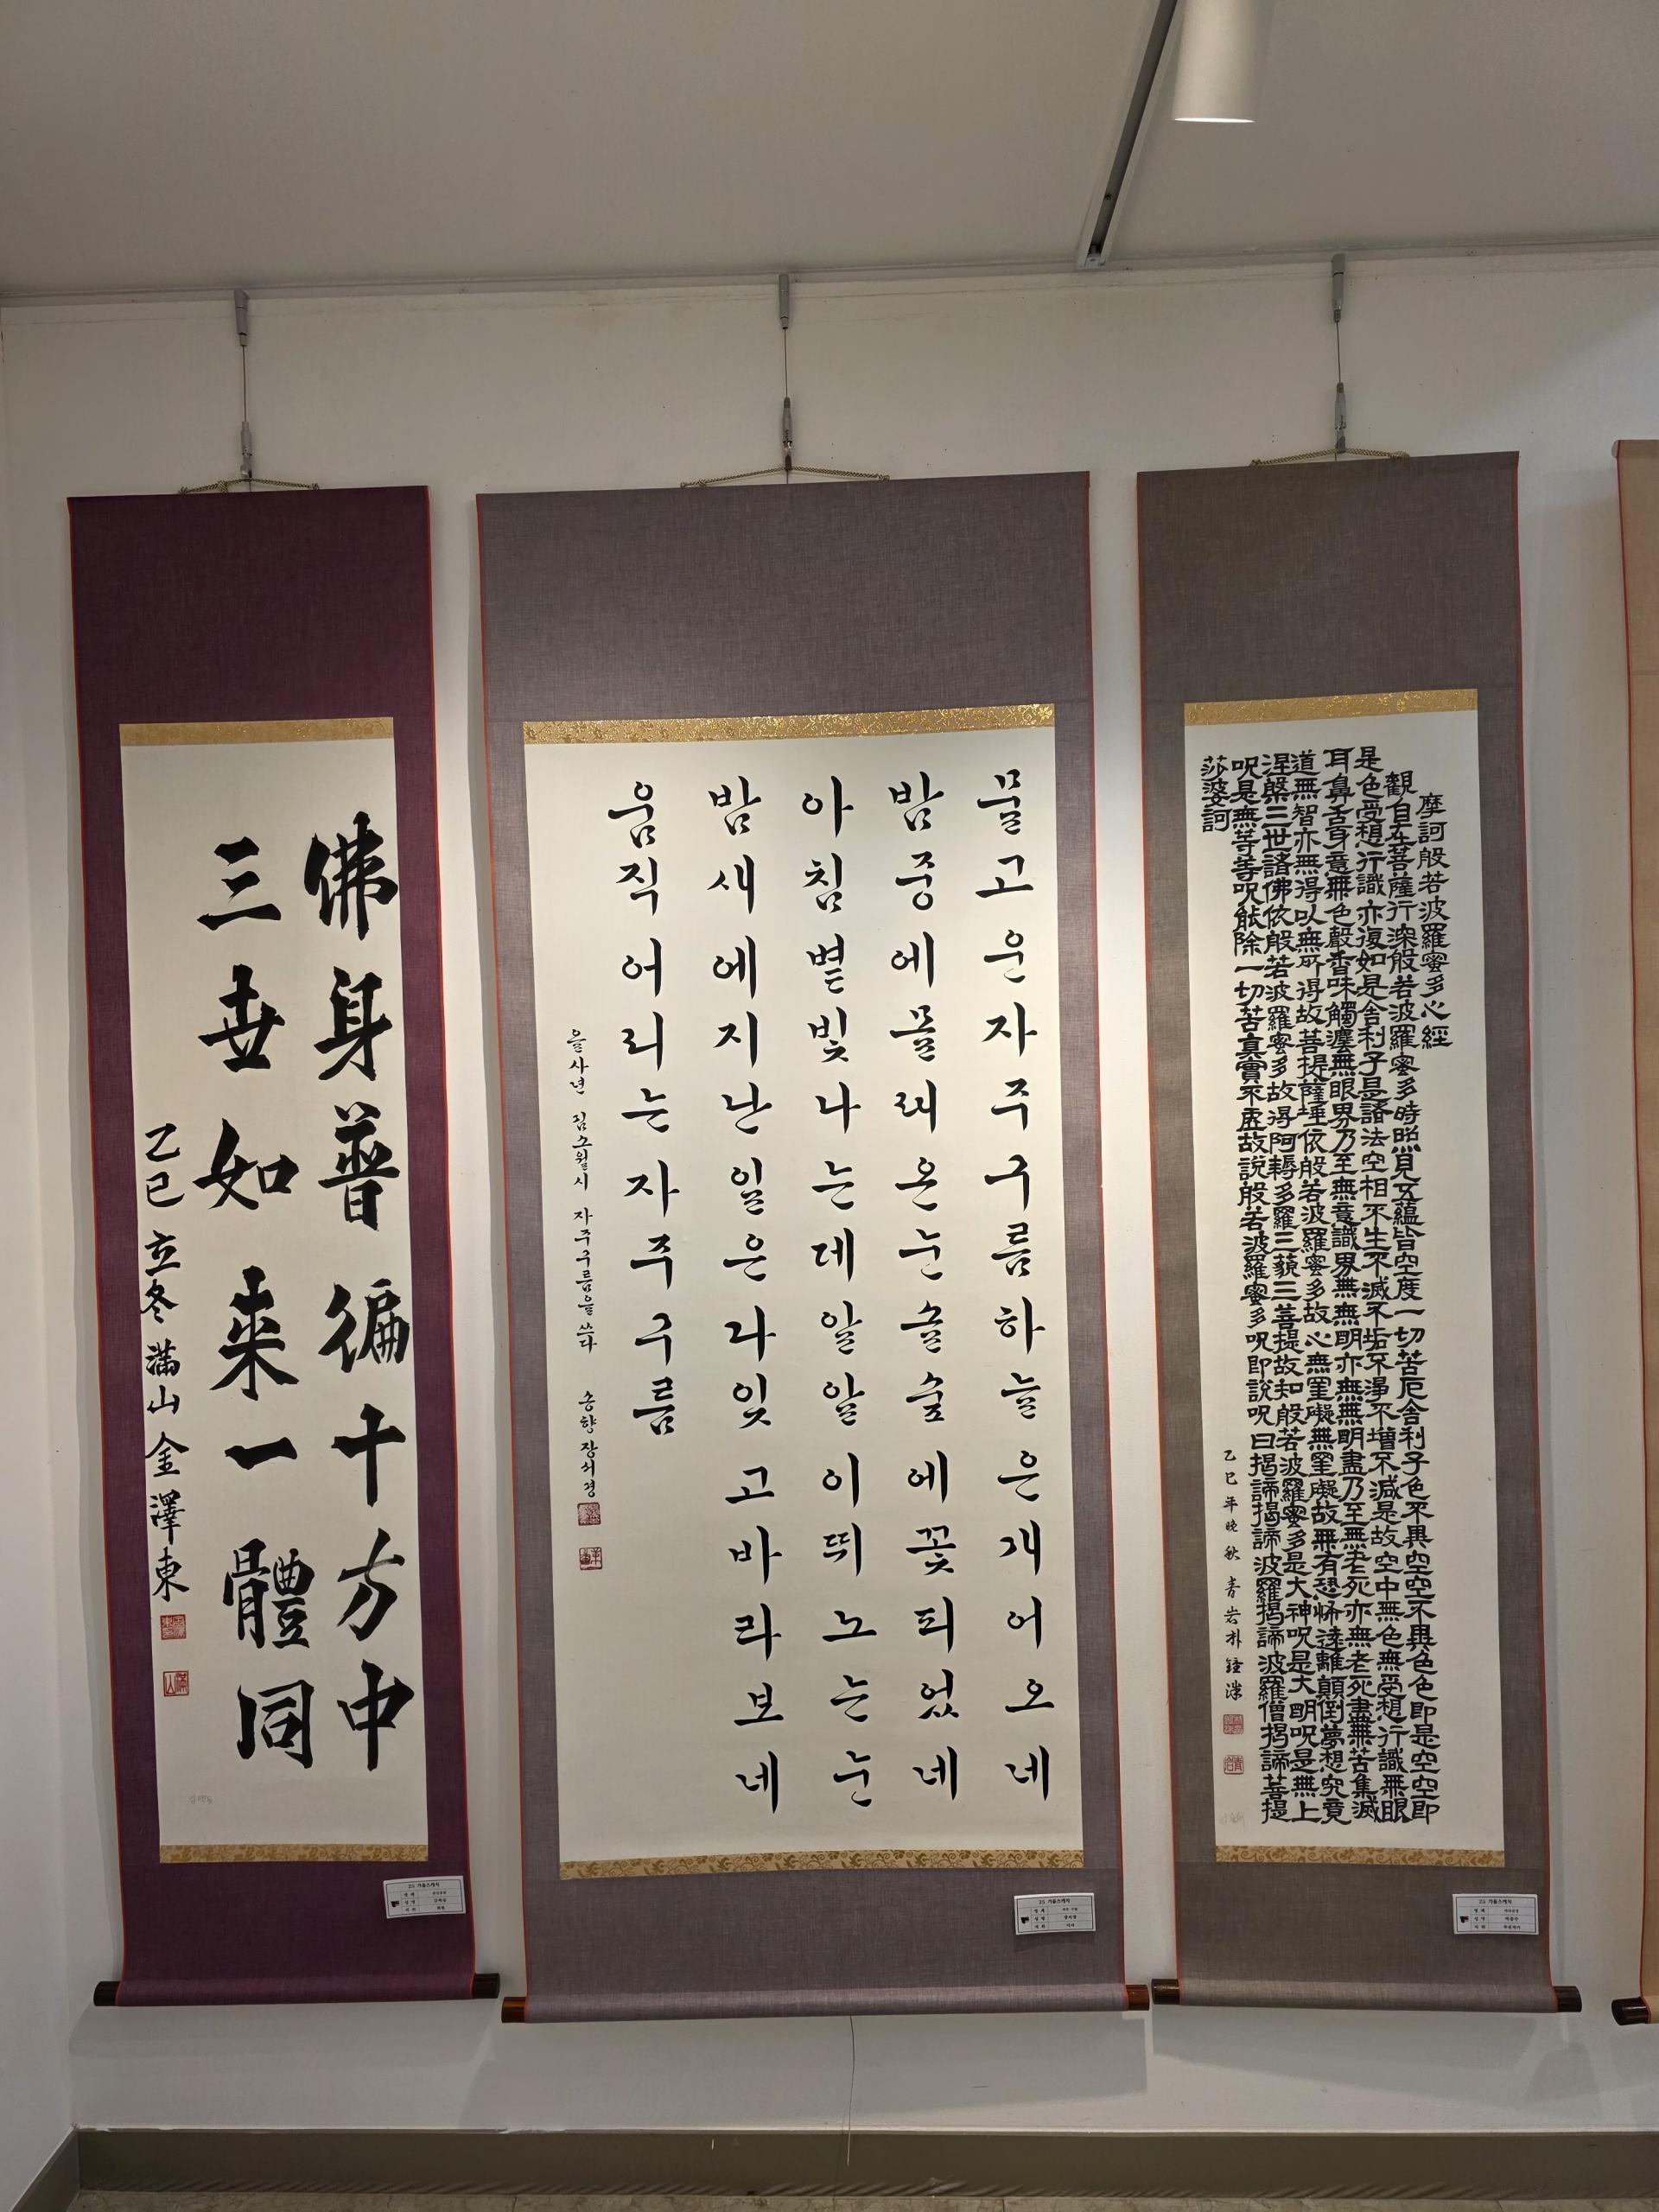 佛身普徧十方中
三世如来一體同
乙巳 立冬 滿山 金澤東
물고운자주구름하늘은개어오네
밤중에몰래온눈솔숲에꽃피었네
아침볕빛나는데알알이뛰노는눈
밤새에지난일은다잊고바라보네
움직어리는자주구름
을사년 김소월시 자주구름을 쓰다 송향 장서경
摩訶般若波羅蜜多心經
觀自在菩薩行深般若波羅蜜多時照見五蘊皆空度一切苦厄舍利子色不異空空不異色色即是空空即
是色受想行識亦復如是舍利子是諸法空相不生不滅不垢不淨不增不減是故空中無色無受想行識無眼
耳鼻舌身意無色聲香味觸灋無眼界乃至無意識界無無明亦無無明盡乃至無老死亦無老死盡無苦集滅
道無智亦無得以無所得故菩提薩埵依般若波羅蜜多故心無罣礙無罣礙故無有恐怖遠離顛倒夢想究竟
涅槃三世諸佛依般若波羅蜜多故得阿耨多羅三藐三菩提故知般若波羅蜜多是大神呪是大明呪是無上
呪是無等等呪能除一切苦真實不虛故說般若波羅蜜多呪即說呪曰揭諦揭諦波羅揭諦波羅僧揭諦菩提
莎婆訶
乙巳年晚秋 青岩 朴
25 가을스케치
25 가을스케치
25 가을스케치